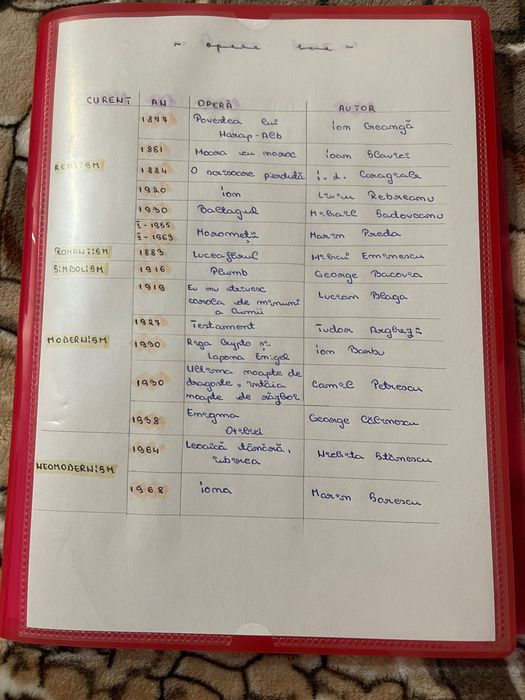 ~ opere bac ~
CURENT AN OPERĂ AUTOR
1877 Povestea lui Ion Creangă
Harap-Alb
1881 Moara cu noroc Ioan Slavici
REALISM 1884 O scrisoare pierdută I. L. Caragiale
1920 Ion Liviu Rebreanu
1930 Baltagul Mihail Sadoveanu
I-1955 Moromeții Marin Preda
II-1963
ROMANTISM 1883 Luceafărul Mihai Eminescu
SIMBOLISM 1916 Plumb George Bacovia
1919 Eu nu strivesc Lucian Blaga
corola de minuni
a lumii
1927 Testament Tudor Arghezi
MODERNISM 1930 Riga Crypto și Ion Barbu
Lapona Enigel
1930 Ultima noapte de Camil Petrescu
dragoste, întâia
noapte de război
1938 Enigma George Călinescu
Otiliei
1964 Leoaică tânără, Nichita Stănescu
iubirea
NEOMODERNISM
1968 Iona Marin Sorescu